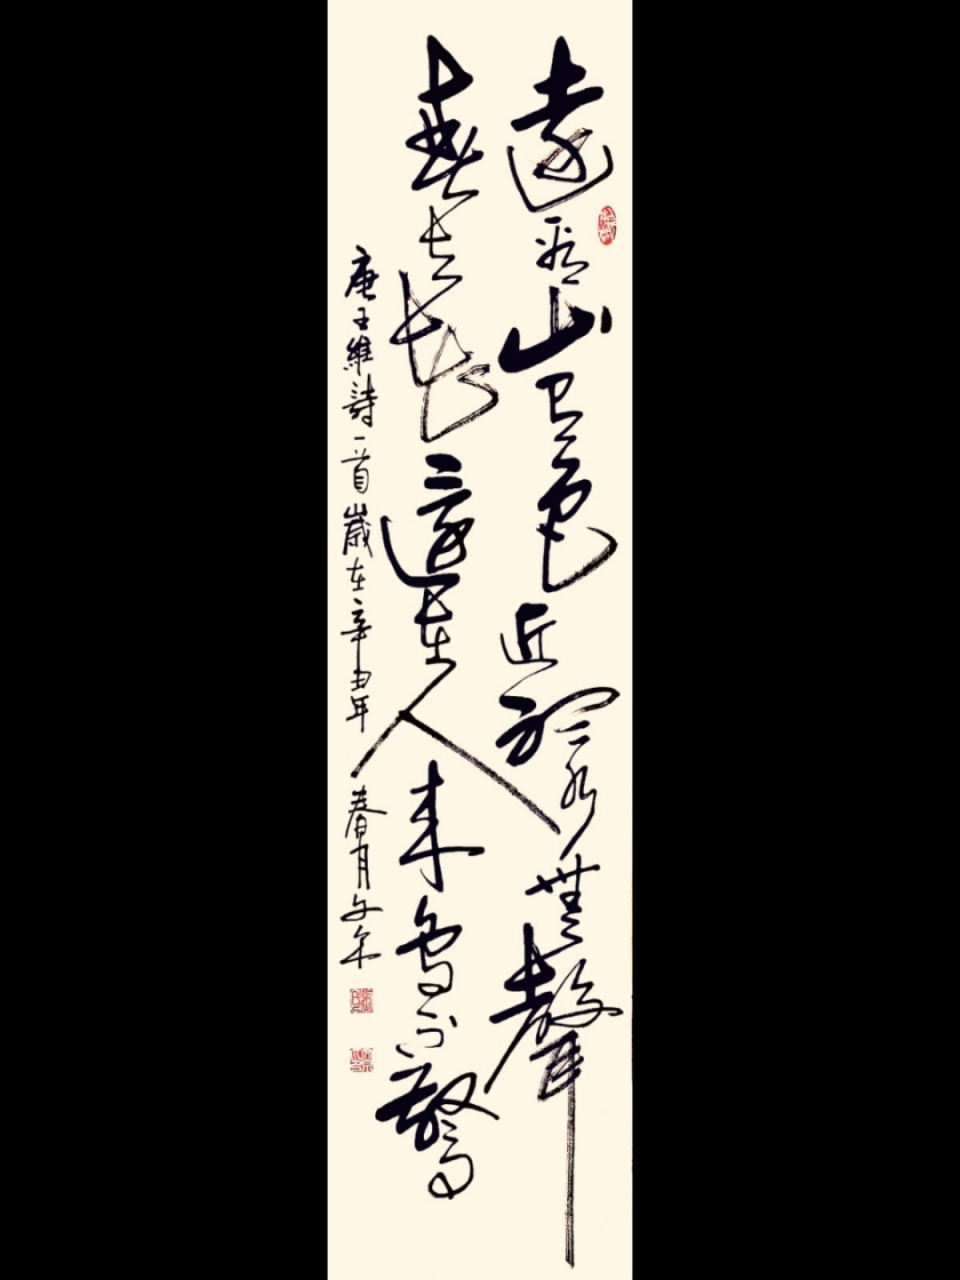 遠看山有色近聽水無聲
春去花還在人來鳥不驚
唐王維詩一首歲在辛丑年春月文宗